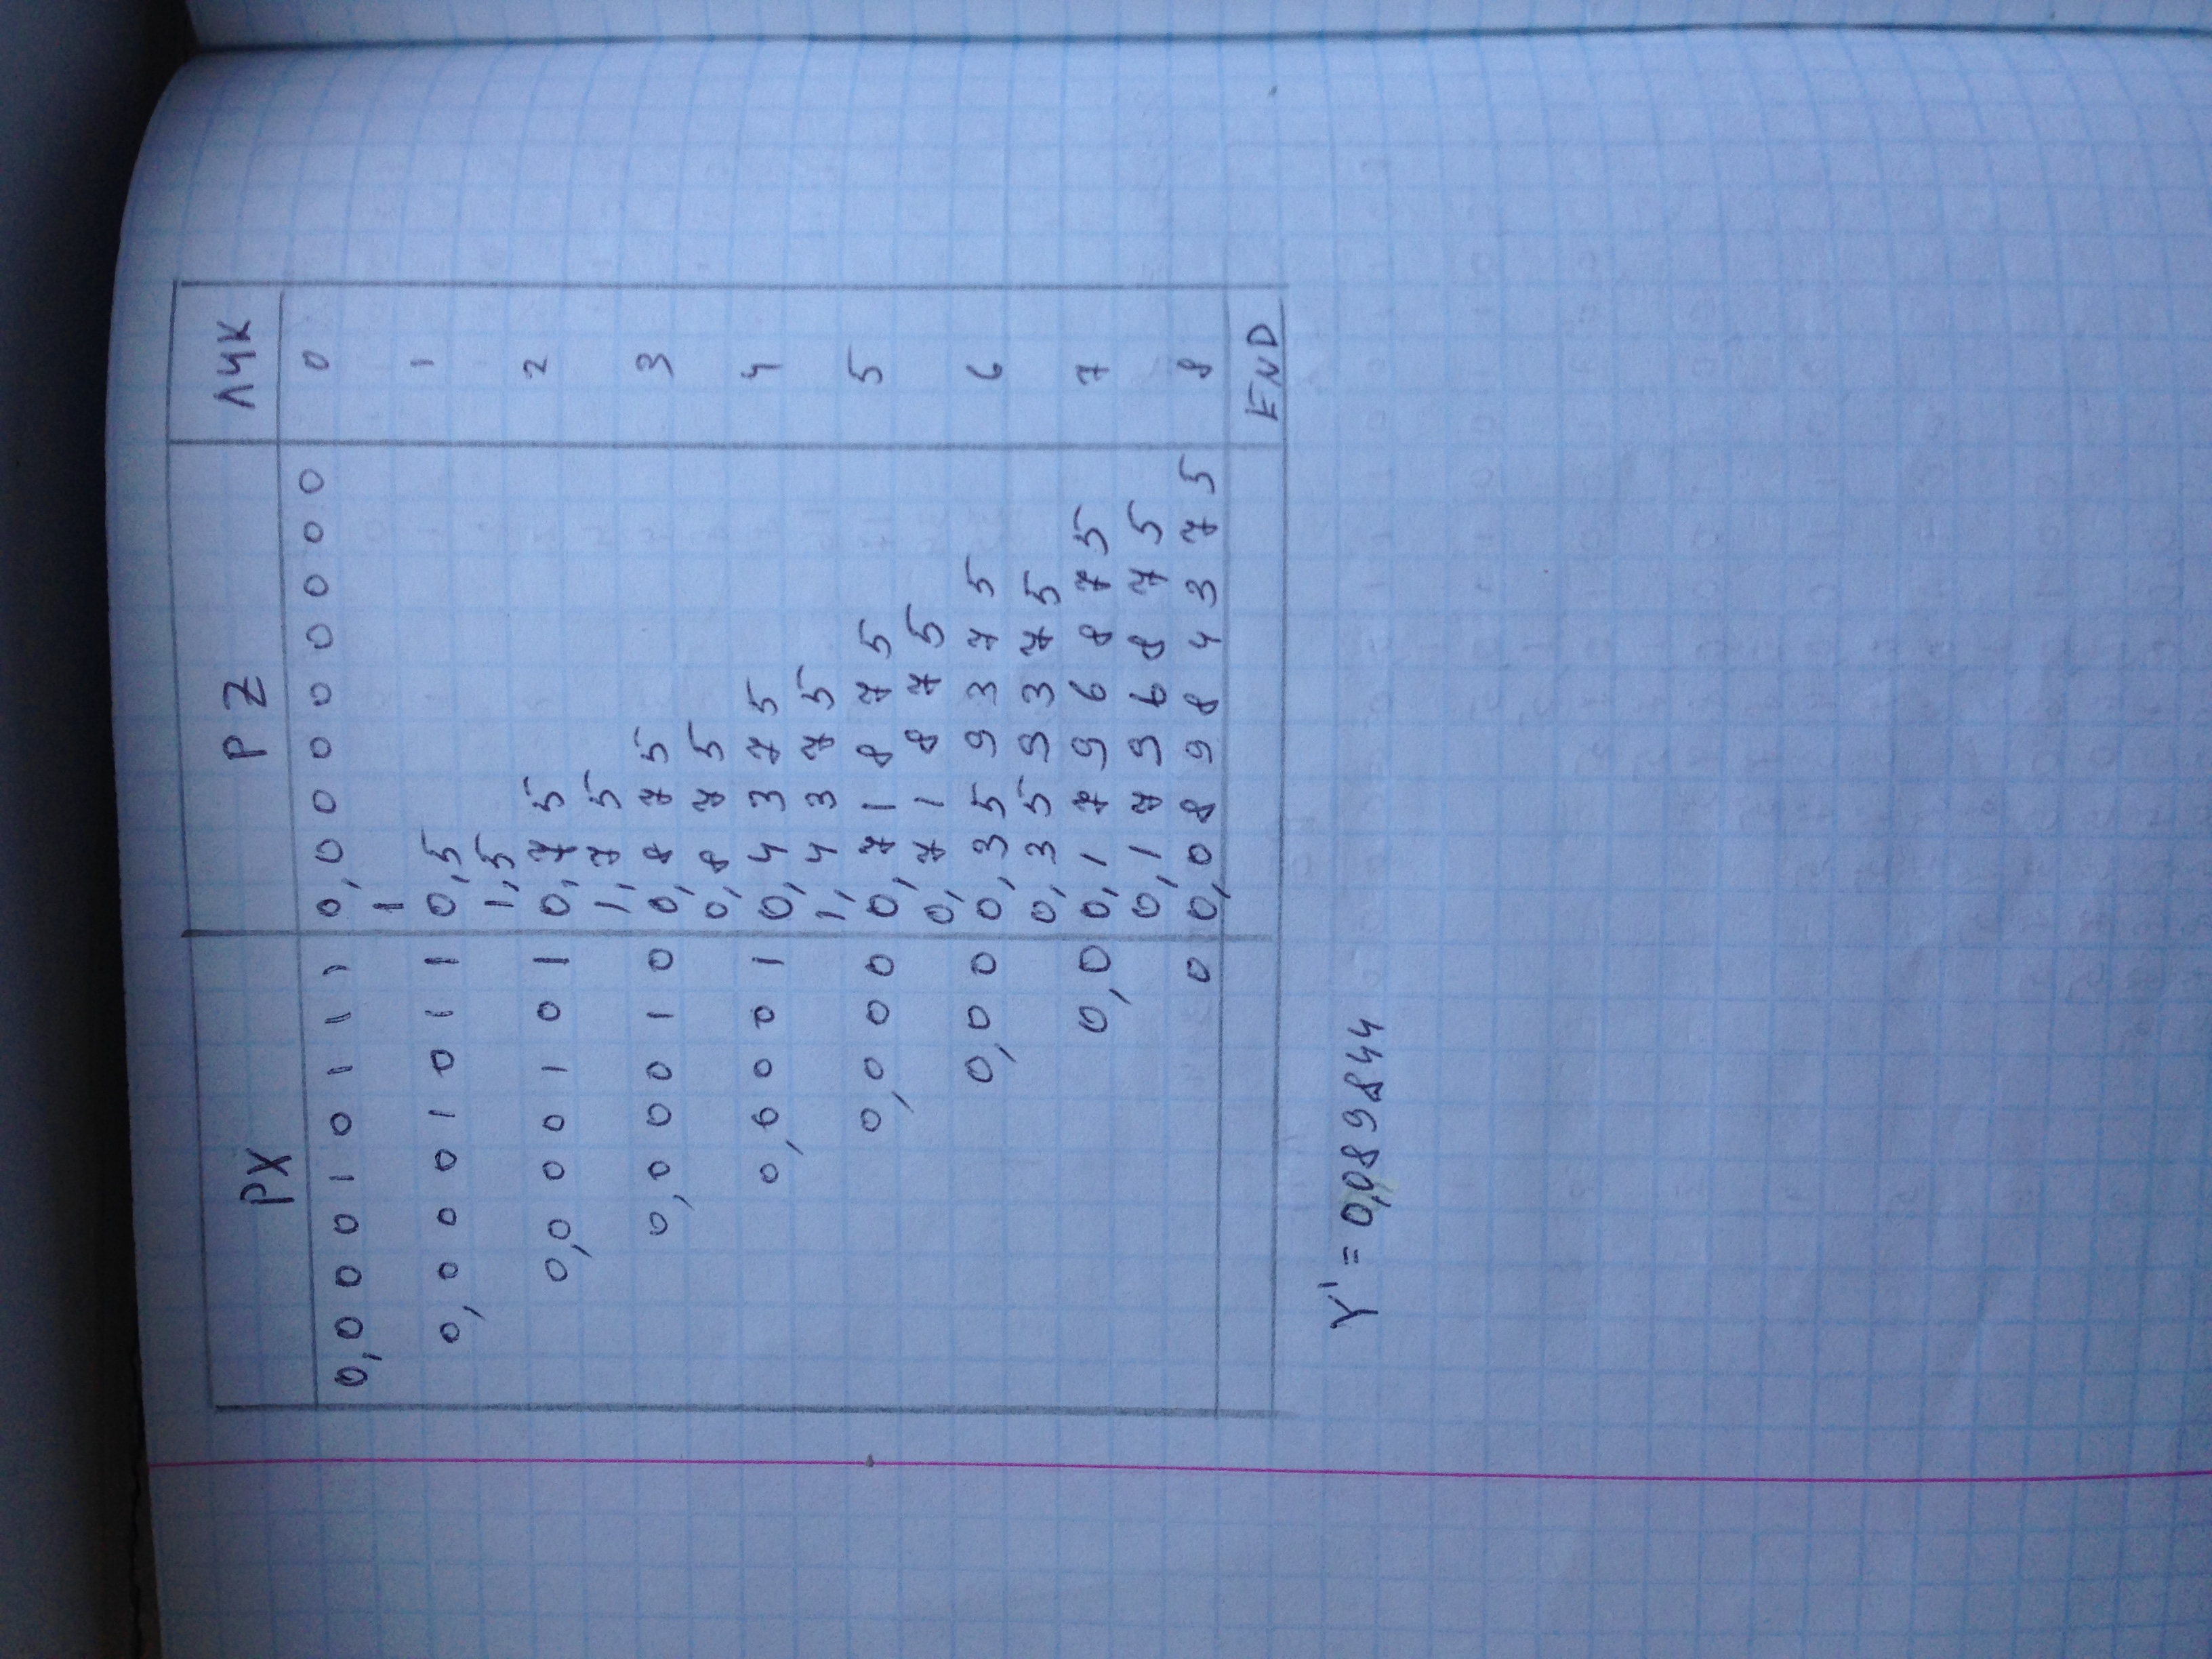 РХ РZ ЛЧК
0,00010111 0,00000000 0
1
0,0001011 0,5 1
1,5
0,000101 0,75 2
1,75
0,00010 0,875 3
0,875
0,0001 0,4375 4
1,4375
0,000 0,71875 5
0,71875
0,00 0,359375 6
0,359375
0,0 0,1796875 7
0,1796875
0 0,08984375 8
END
Y' = 0,089844